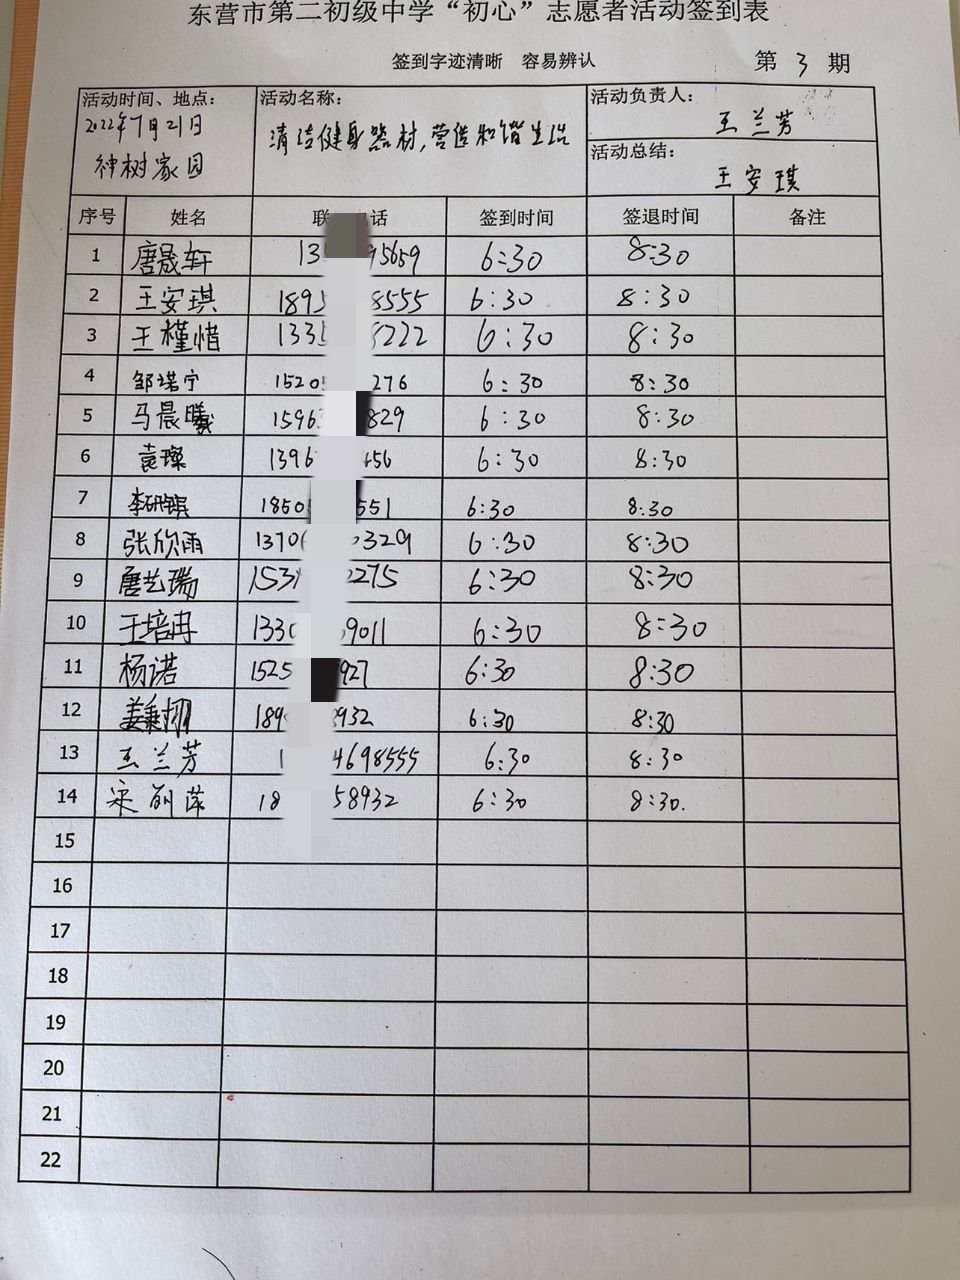 东营市第二初级中学“初心”志愿者活动签到表
签到字迹清晰 容易辨认 第 3 期
活动时间、地点: 活动名称: 活动负责人:
2022年7月21日 清洁健身器材,营造和谐生活 王兰芳
神树家园 活动总结:
王安琪
序号 姓名 联 话 签到时间 签退时间 备注
1 唐晟轩 13 95659 6:30 8:30
2 王安琪 1895 8555 6:30 8:30
3 王槿惜 1335 8222 6:30 8:30
4 邹诺宁 1520 276 6:30 8:30
5 马晨曦 1596 829 6:30 8:30
6 袁璨 1396 456 6:30 8:30
7 1850 551 6:30 8:30
8 张欣雨 1370 0329 6:30 8:30
9 唐艺瑞 153 2275 6:30 8:30
10 于培冉 1330 9011 6:30 8:30
11 杨诺 1525 927 6:30 8:30
12 189 932 6:30 8:30
13 王兰芳 1 4698555 6:30 8:30
14 宋 18 58932 6:30 8:30.
15
16
17
18
19
20
21
22